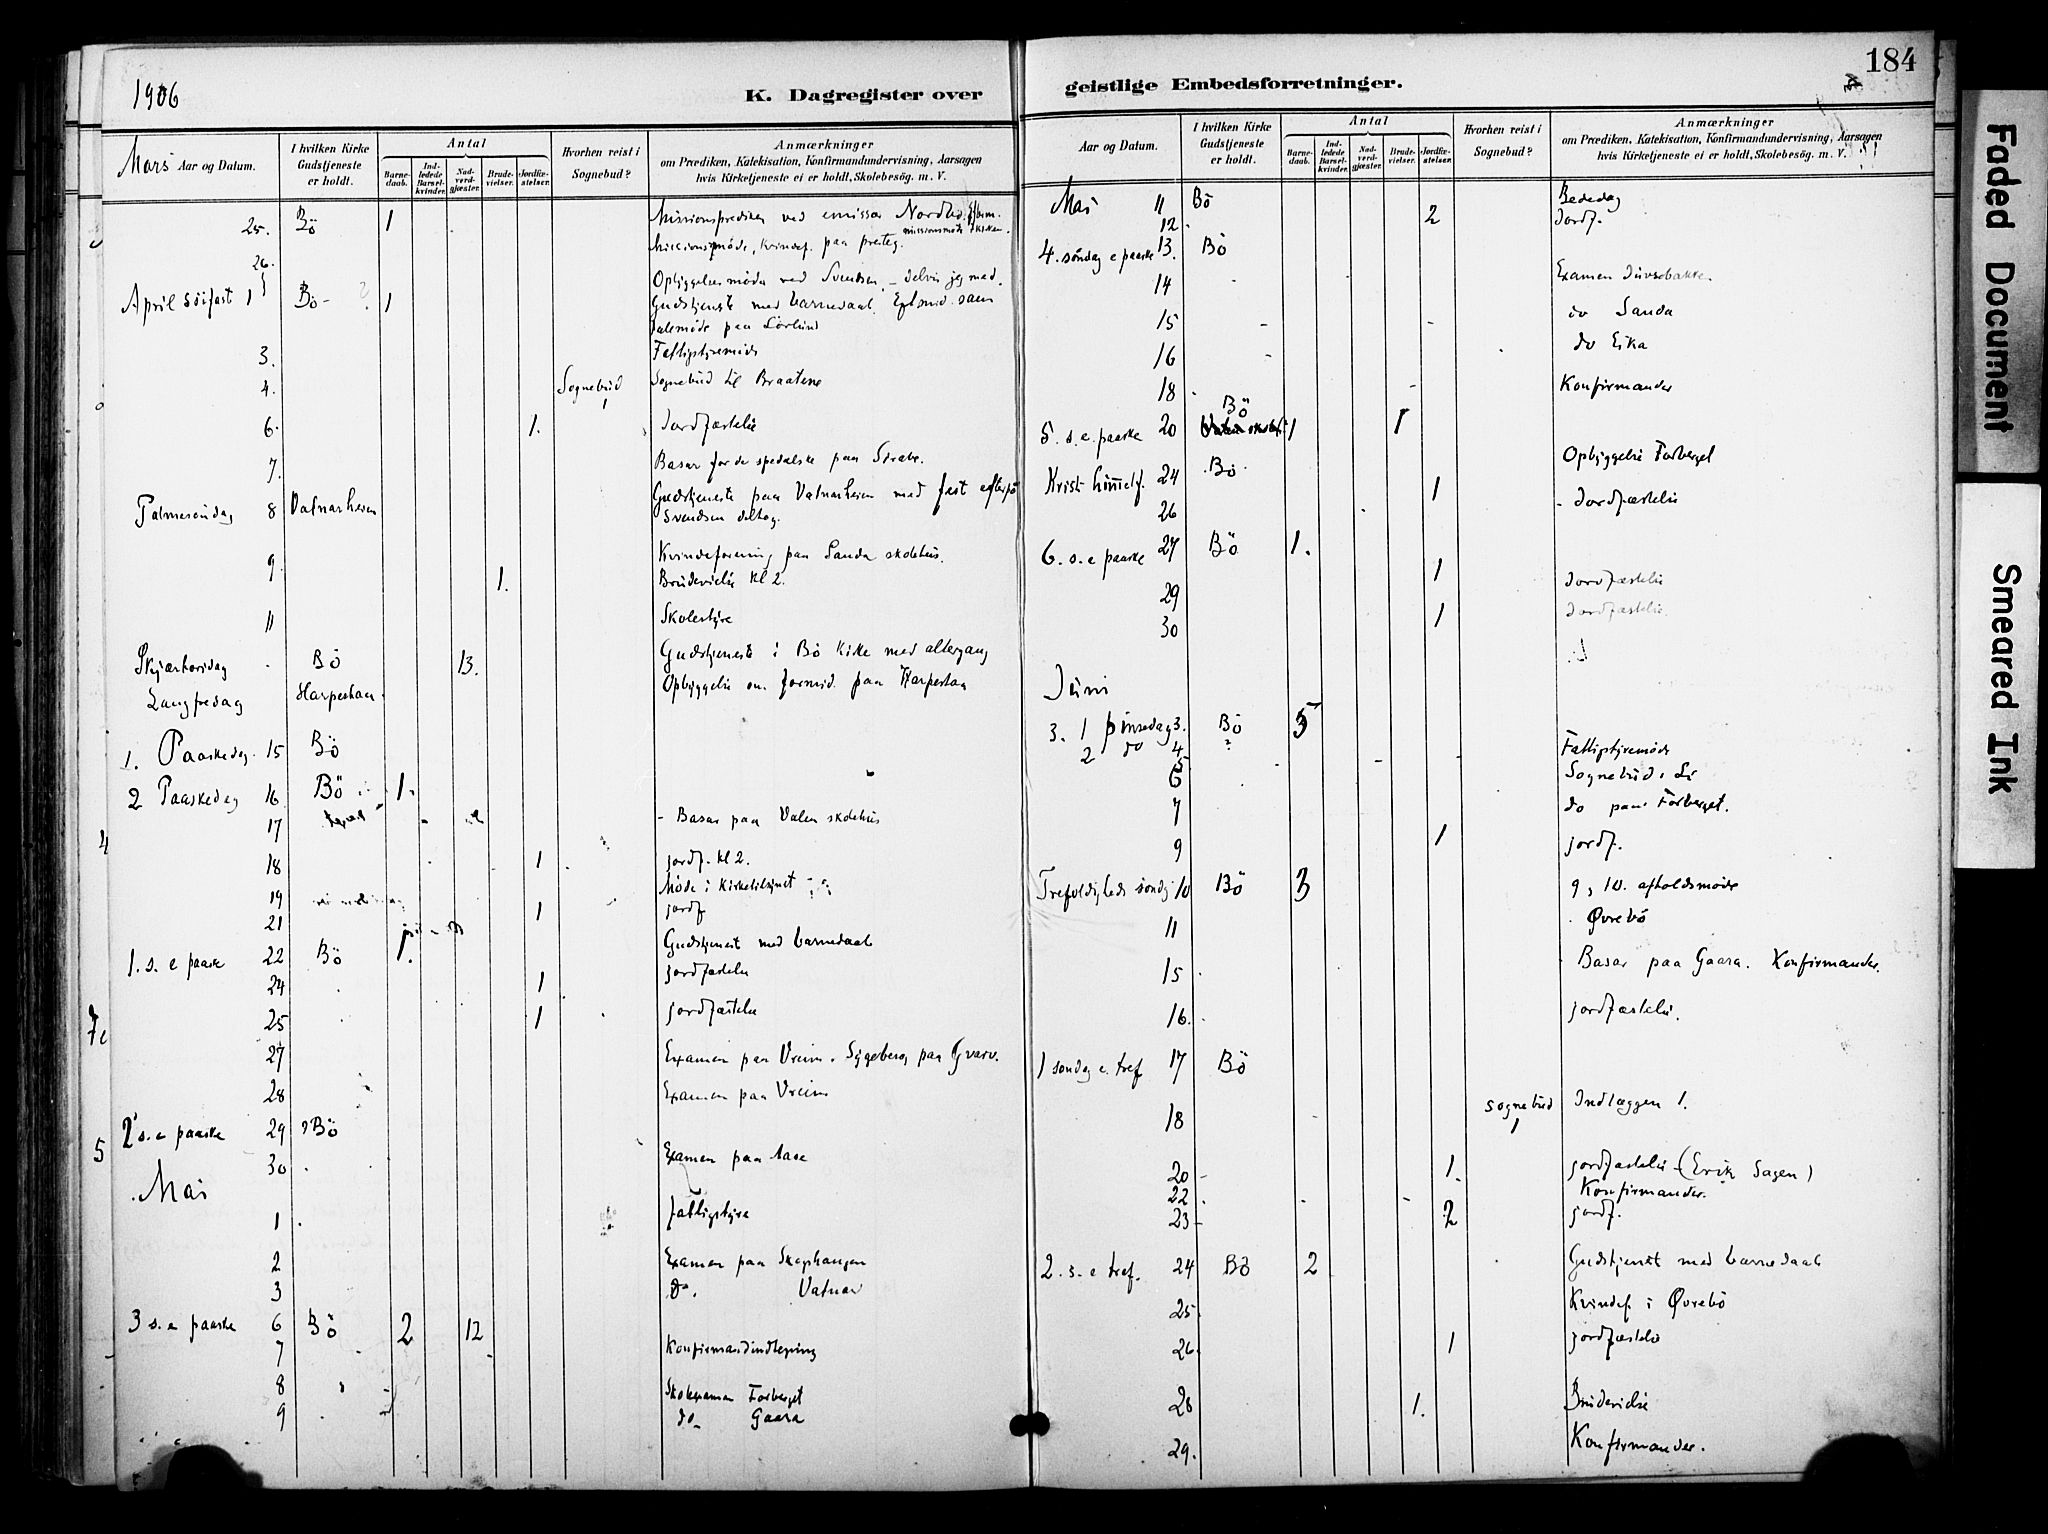 1906
K. Dagregister over
Mars Aar og Datum.
I hvilken Kirke Gudstjeneste er holdt.
Antal
Barnedaab.
Indledede Barselkvinder.
Nadverdgjæster.
Brudevielser.
Jordfæstelser.
Hvorhen reist i Sognebud?
Anmærkninger
om Prædiken, Katekisation, Konfirmandundervisning, Aarsagen
hvis Kirketjeneste ei er holdt, Skolebesøg. m. V.
25. Bö 1 Missionsprediken ved emissær
Missionsmöde, kvindef. paa presteg.
26. Opbyggelsesmöde ved Svendsen, - delvis jeg med.
April 1 Bö 1 Gudstjeneste med barnedaab.
3. Fattigstyremöde
4. Sognebud 1 Sognebud til Braatene
6. 1. Jordfæstelse
7. Basar for de spedalske paa
Palmesöndag 8 Vatnarheien Gudstjeneste paa Vatnarheien med fest efterpå
Svendsen deltog.
9. Kvindeforening paa Sanda skolehus.
1. Brudevielse kl 2.
11 Skolestyre
Skjærtorsdag Bö 13. Gudstjeneste i Bö Kirke med altergang
Langfredag Harpestaa Opbyggelse om formid. paa Harpestaa
1. Paaskedag. 15 Bö
2 Paaskedag 16 Bö 1.
17 - Basar paa Valen skolehus
18 1 jordf. kl 2.
19 Möde i Kirketilsynet
21 1 jordf
1. s. e paaske 22 Bö 1. Gudstjenest med barnedaab
24 1 jordfæstelse
25 1 jordfæstelse
27 Examen paa Vreim. Sygebesøg paa Gvarv.
28 Examen paa Vreim
2 s. e paaske 29 Bö
30 Examen paa Aase
Mai
1 fattigstyre
2 Examen paa Skogshaugen
3 do. Vatnar
3 s. e paaske 6 Bö 2 12
7 Konfirmandindlegning
8 Skoleexamen Forberget
9 do Gaara
184
geistlige Embedsforretninger.
Aar og Datum.
I hvilken Kirke Gudstjeneste er holdt.
Antal
Barnedaab.
Indledede Barselkvinder.
Nadverdgjæster.
Brudevielser.
Jordfæstelser.
Hvorhen reist i Sognebud?
Anmærkninger
om Prædiken, Katekisation, Konfirmandundervisning, Aarsagen
hvis Kirketjeneste ei er holdt, Skolebesög. m. V.
Mai 11 Bö Bededag
12. 2 Jordf.
4. söndag e paaske 13. Bö
14 Examen
15 do Sanda
16 do Eika
18 Konfirmander
5. s. e. paaske 20 Bö 1 1
Opbyggelse Forberget
Krist. himmelf. 24 Bö
26 1 Jordfæstelse
6. s. e paaske 27 Bö 1.
29 1 Jordfæstelse
30 1 Jordfæstelse
Juni
3. 1 pinsedag 3. Bö 5
2 do 4
5 Fattigstyremöde
6 Sognebud i Li
7 do paa Forberget.
9 1 jordf.
Trefoldigheds söndag 10 Bö 3 9, 10. afholdsmöde
11 Øvrebö
15 Basar paa Gaara. Konfirmander.
16. jordfæstelse.
1 söndag e. tref 17 Bö
18 sognebud 1 Indlæggen 1.
20 1. jordfæstelse (Erik Sagen)
22 Konfirmander.
23 2 jordf.
2. s. e tref. 24 Bö 2 Gudstjenest med barnedaab
25. Kvindef. i Øvrebö
26. 1 jordfæstelse
28 1. Brudevielse
29. Konfirmander.
Faded Document
Smeared Ink